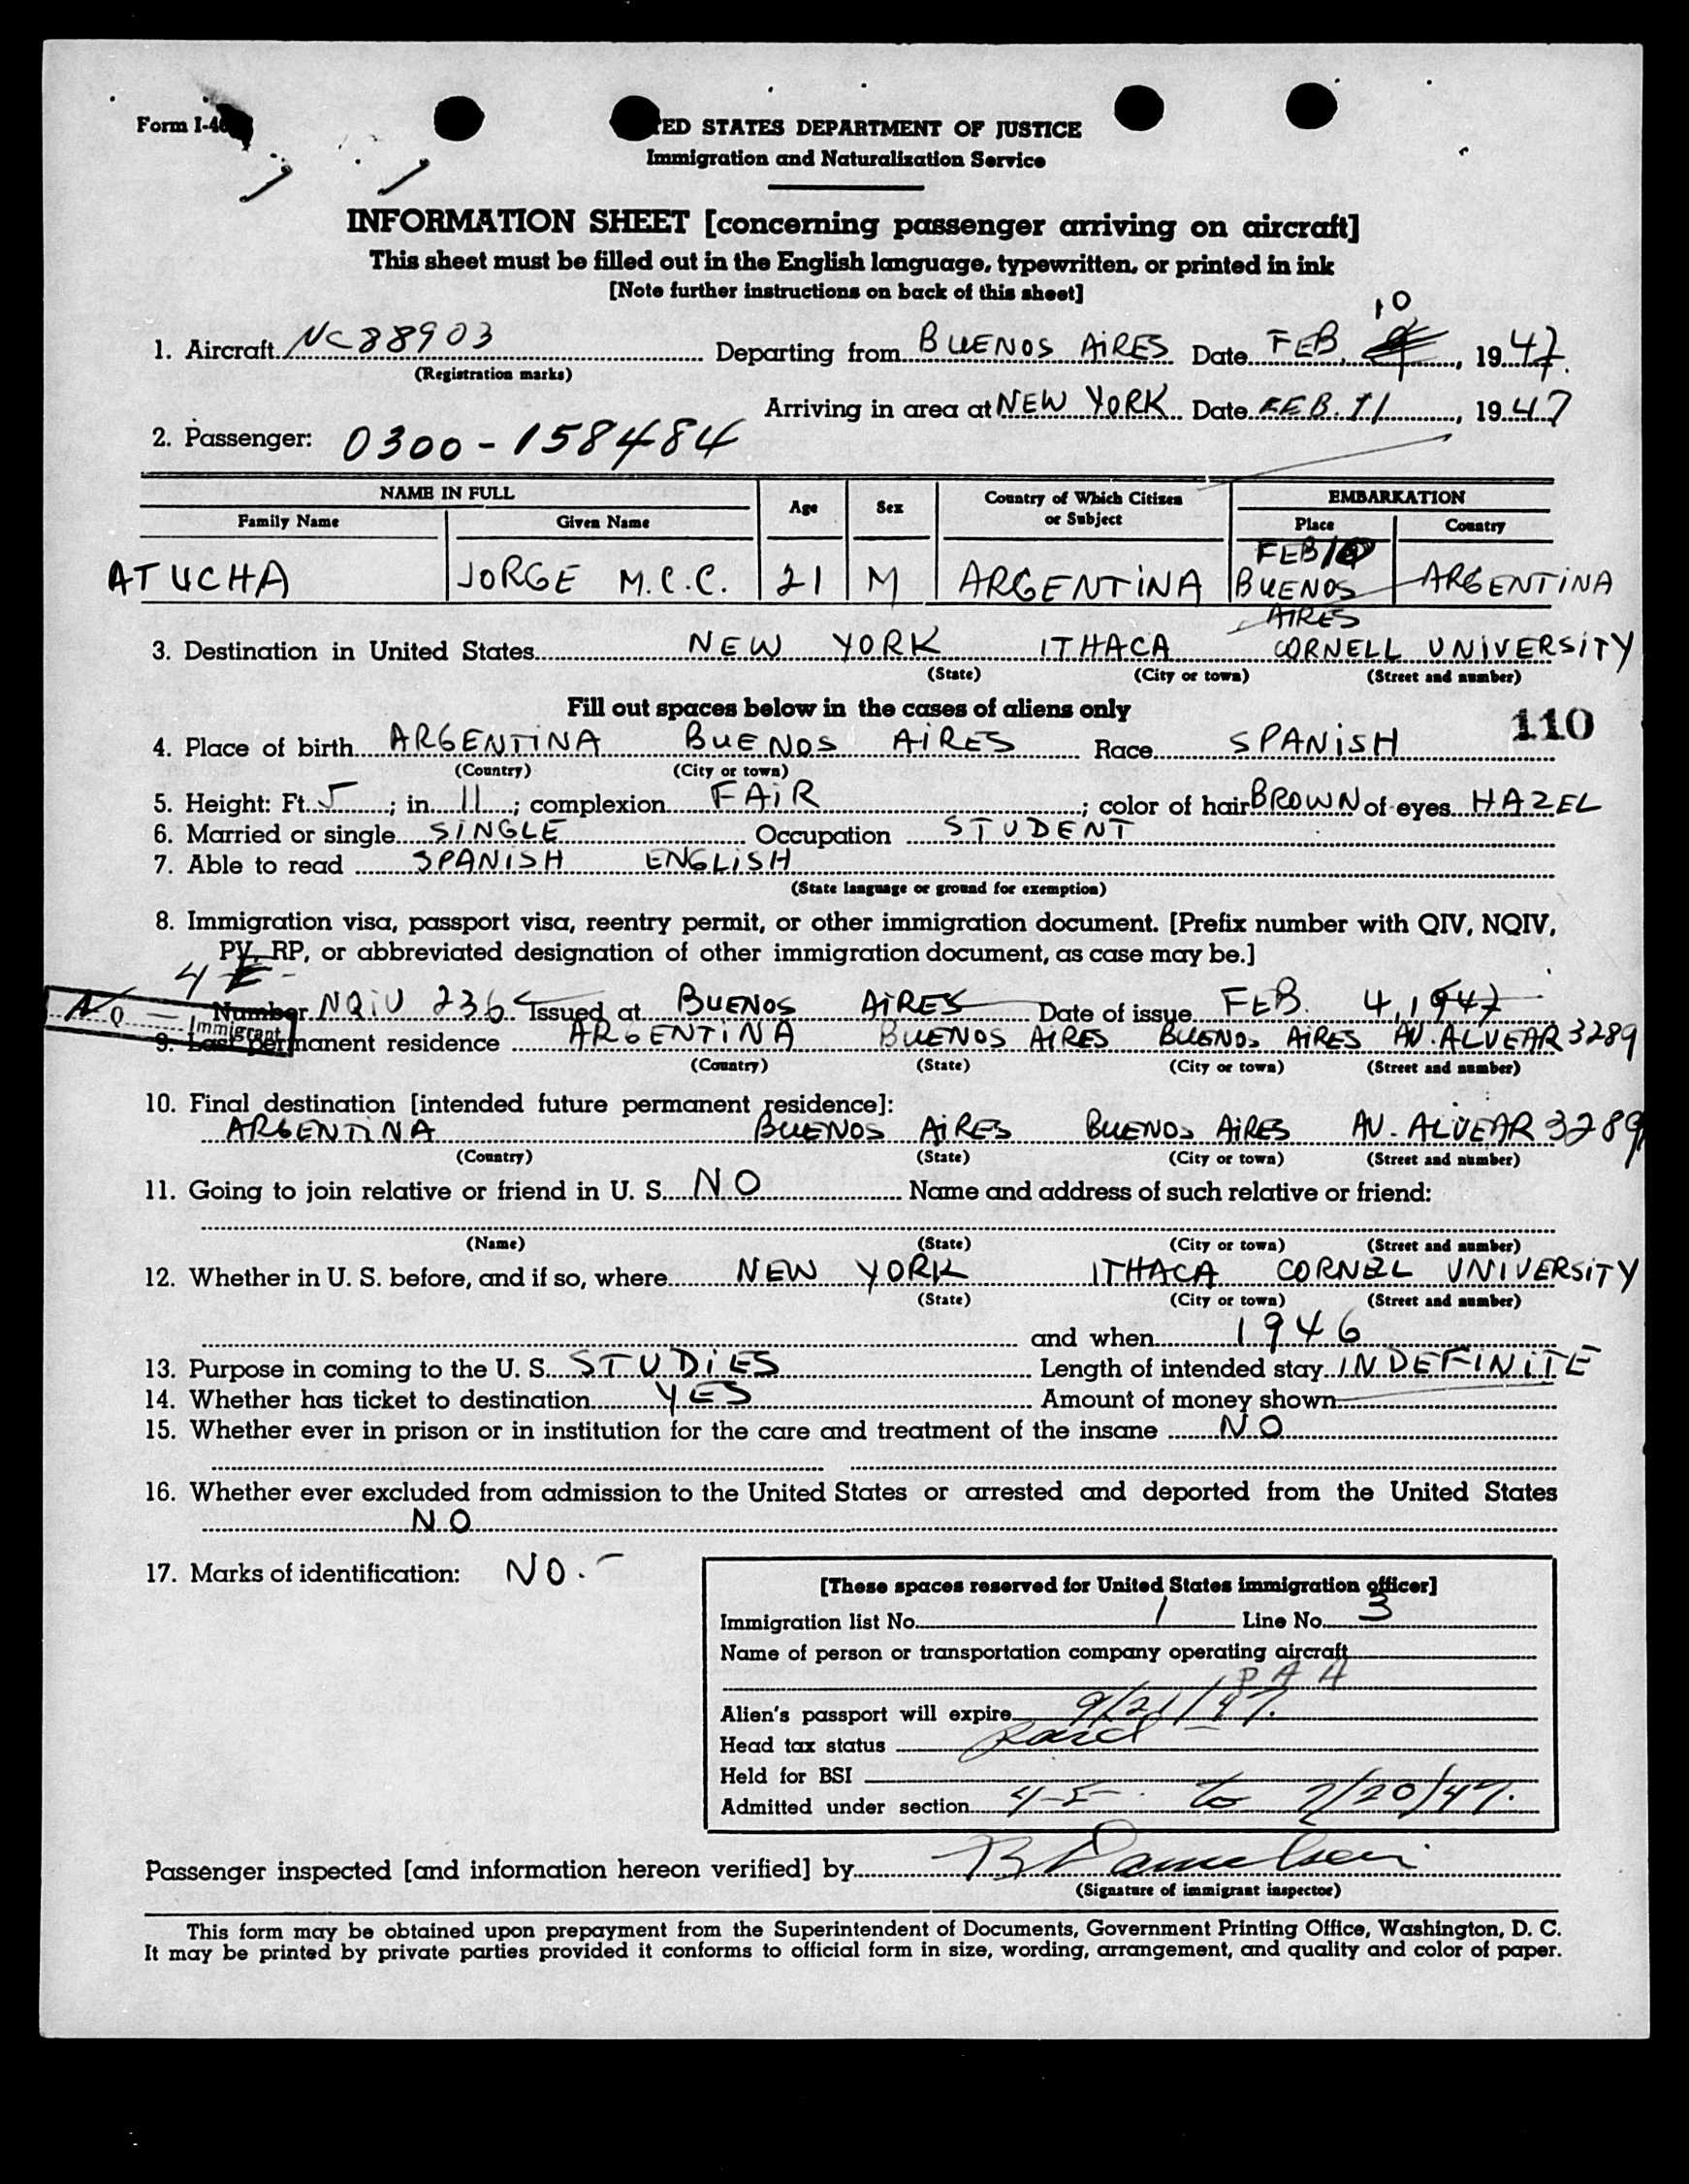 Form I-4
ED STATES DEPARTMENT OF JUSTICE
Immigration and Naturalization Service
INFORMATION SHEET [concerning passenger arriving on aircraft]
This sheet must be filled out in the English language, typewritten, or printed in ink
[Note further instructions on back of this sheet]
10
1. Aircraft NC88903 Departing from BUENOS AIRES Date FEB. 9, 1947.
(Registration marks)
Arriving in area at NEW YORK Date FEB. 11, 1947
2. Passenger: 0300-158484
NAME IN FULL Age Sex Country of Which Citizen or Subject EMBARKATION
Family Name Given Name Place Country
FEB 10
ATUCHA JORGE M.C.C. 21 M ARGENTINA BUENOS ARGENTINA
AIRES
3. Destination in United States NEW YORK ITHACA CORNELL UNIVERSITY
(State) (City or town) (Street and number)
Fill out spaces below in the cases of aliens only
110
4. Place of birth ARGENTINA BUENOS AIRES Race SPANISH
(Country) (City or town)
5. Height: Ft. 5; in. 11; complexion FAIR; color of hair BROWN of eyes HAZEL
6. Married or single SINGLE Occupation STUDENT
7. Able to read SPANISH ENGLISH
(State language or ground for exemption)
8. Immigration visa, passport visa, reentry permit, or other immigration document. [Prefix number with QIV, NQIV,
PV, RP, or abbreviated designation of other immigration document, as case may be.]
4 E-
Number NQIV 236 Issued at BUENOS AIRES Date of issue FEB. 4, 1947
N Q Immigrant
9. Last permanent residence ARGENTINA BUENOS AIRES BUENOS AIRES AV. ALVEAR 3289
(Country) (State) (City or town) (Street and number)
10. Final destination [intended future permanent residence]:
ARGENTINA BUENOS AIRES BUENOS AIRES AV. ALVEAR 3289
(Country) (State) (City or town) (Street and number)
11. Going to join relative or friend in U. S. NO Name and address of such relative or friend:
(Name) (State) (City or town) (Street and number)
12. Whether in U. S. before, and if so, where NEW YORK ITHACA CORNELL UNIVERSITY
(State) (City or town) (Street and number)
and when 1946
13. Purpose in coming to the U. S. STUDIES Length of intended stay INDEFINITE
14. Whether has ticket to destination YES Amount of money shown
15. Whether ever in prison or in institution for the care and treatment of the insane NO
16. Whether ever excluded from admission to the United States or arrested and deported from the United States
NO
17. Marks of identification: NO.-
[These spaces reserved for United States immigration officer]
Immigration list No. 1 Line No. 3
Name of person or transportation company operating aircraft
PAA
Alien's passport will expire 9/21/47.
Head tax status Paid
Held for BSI
Admitted under section 4-E to 7/20/47.
Passenger inspected [and information hereon verified] by
(Signature of immigrant inspector)
This form may be obtained upon prepayment from the Superintendent of Documents, Government Printing Office, Washington, D. C.
It may be printed by private parties provided it conforms to official form in size, wording, arrangement, and quality and color of paper.